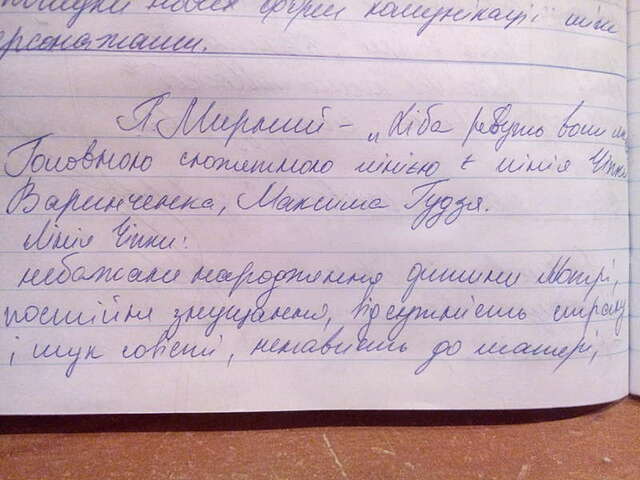 пошуки нових форм комунікації між
персонажами.
П. Мирний – „Хіба ревуть воли
Головною сюжетною лінією є лінія Чіпки
Варинченка, Максима Гудзя.
Лінія Чіпки:
небажане народження дитини Мотрі,
постійне знущання, відсутність страху
і мук совісті, ненависть до матері,